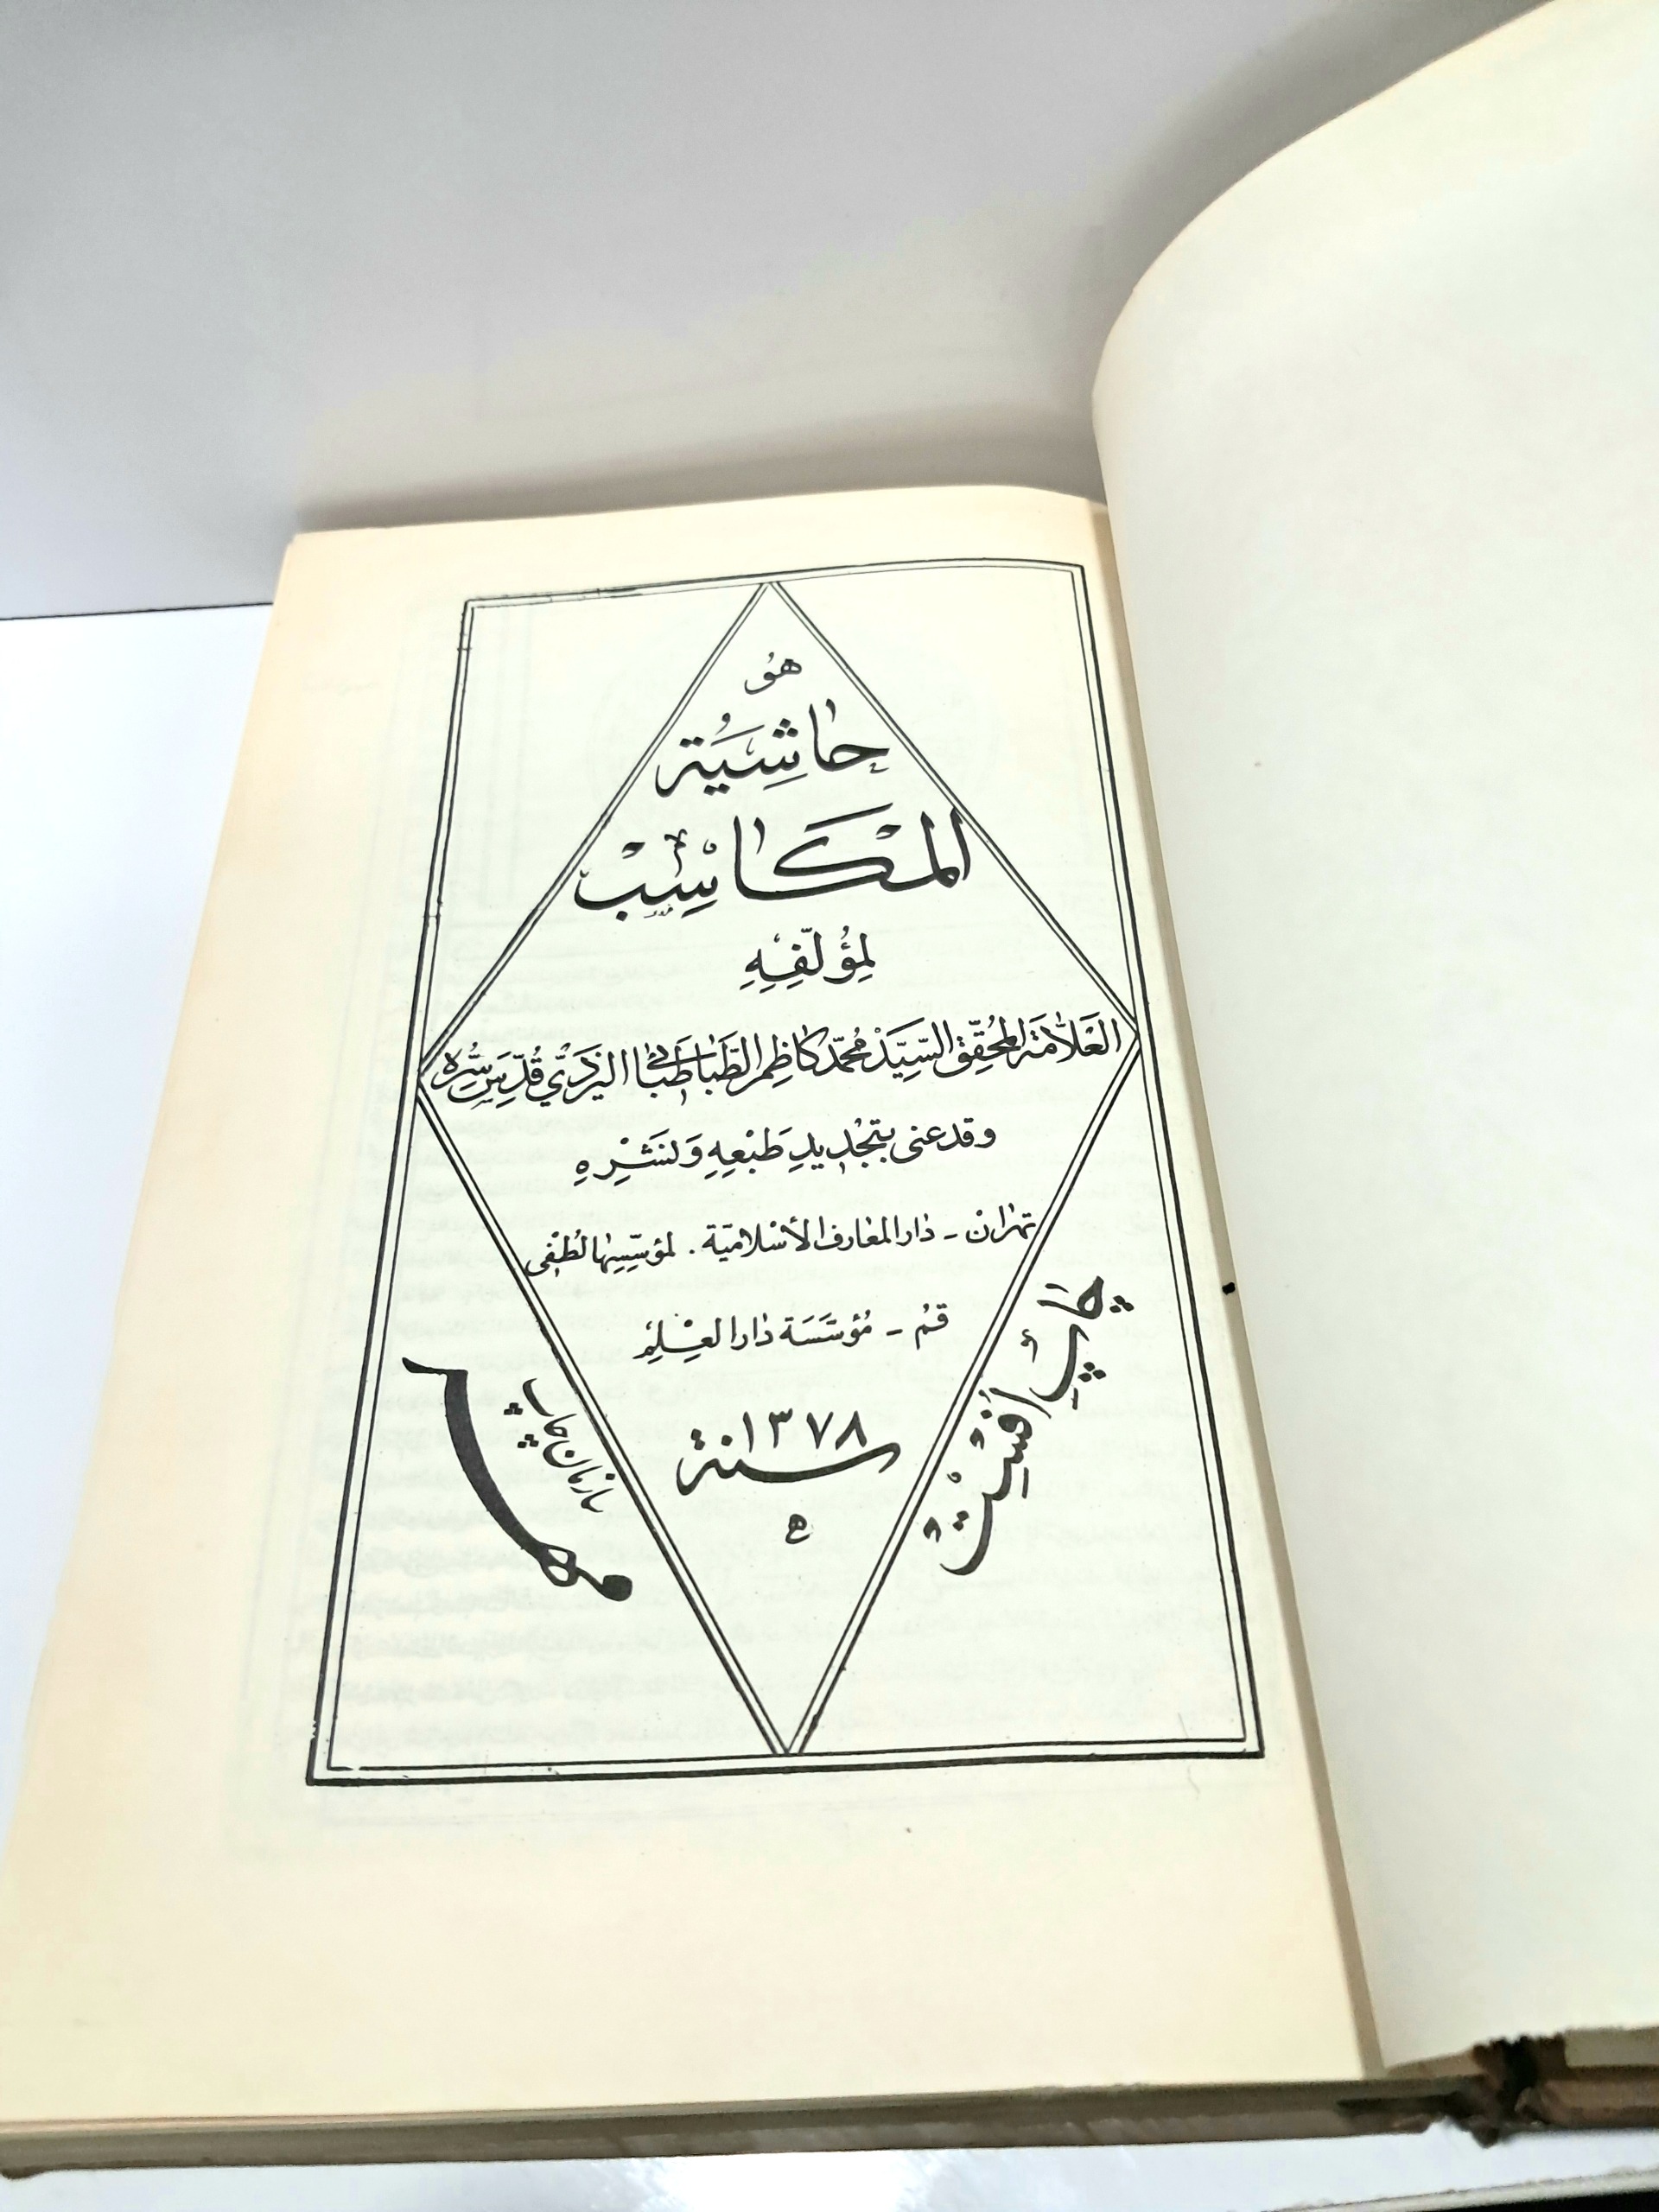 هُو
حاشِيَةُ
المَكاسِبْ
لِمُؤَلِّفِهِ
العَلّامَة المُحَقِّق السَّيِّد مُحَمَّد كاظِم الطَّباطَبائي اليَزديّ قُدِّسَ سِرُّه
وقد عنى بتَجْديدِ طَبْعِهِ وَنَشْرِهِ
تهران - دار المعارف الأسْلاميّة . لمؤسِّسِها لُطْفى
قم - مُؤسَّسَة دار العِلْم
سنة ١٣٧٨
ه
چاپ افسِتْ
سازمان چاپ
مهر